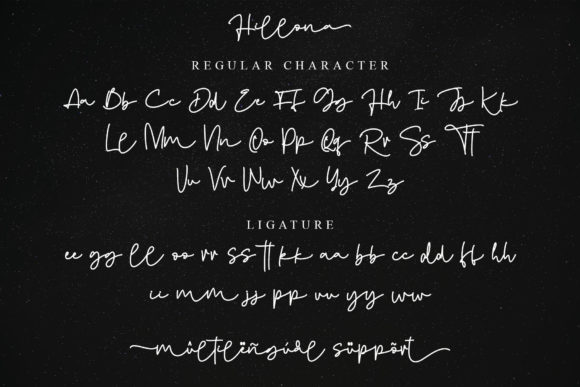 Hillona
REGULAR CHARACTER
Aa Bb Cc Dd Ee Ff Gg Hh Ii Jj Kk
Ll Mm Nn Oo Pp Qq Rr Ss Tt
Uu Vv Ww Xx Yy Zz
LIGATURE
ee gg ll oo rr ss tt kk aa bb cc dd ff hh
ii mm jj pp uu yy ww
mûltilëñgúál süppõrt